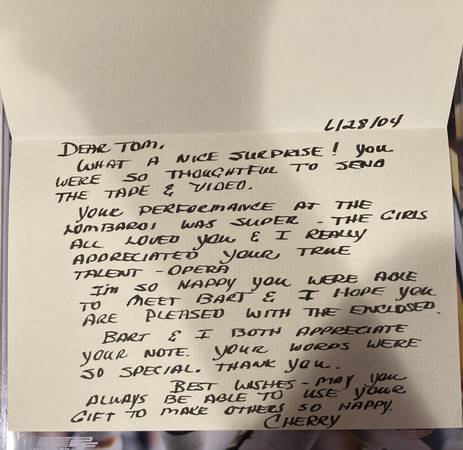 6/28/04
DEAR TOM,
WHAT A NICE SURPRISE! YOU
WERE SO THOUGHTFUL TO SEND
THE TAPE & VIDEO.
YOUR PERFORMANCE AT THE
LOMBARDI WAS SUPER - THE GIRLS
ALL LOVED YOU & I REALLY
APPRECIATED YOUR TRUE
TALENT - OPERA
I'M SO HAPPY YOU WERE ABLE
TO MEET BART & I HOPE YOU
ARE PLEASED WITH THE ENCLOSED.
BART & I BOTH APPRECIATE
YOUR NOTE. YOUR WORDS WERE
SO SPECIAL. THANK YOU.
BEST WISHES - MAY YOU
ALWAYS BE ABLE TO USE YOUR
GIFT TO MAKE OTHERS SO HAPPY.
CHERRY